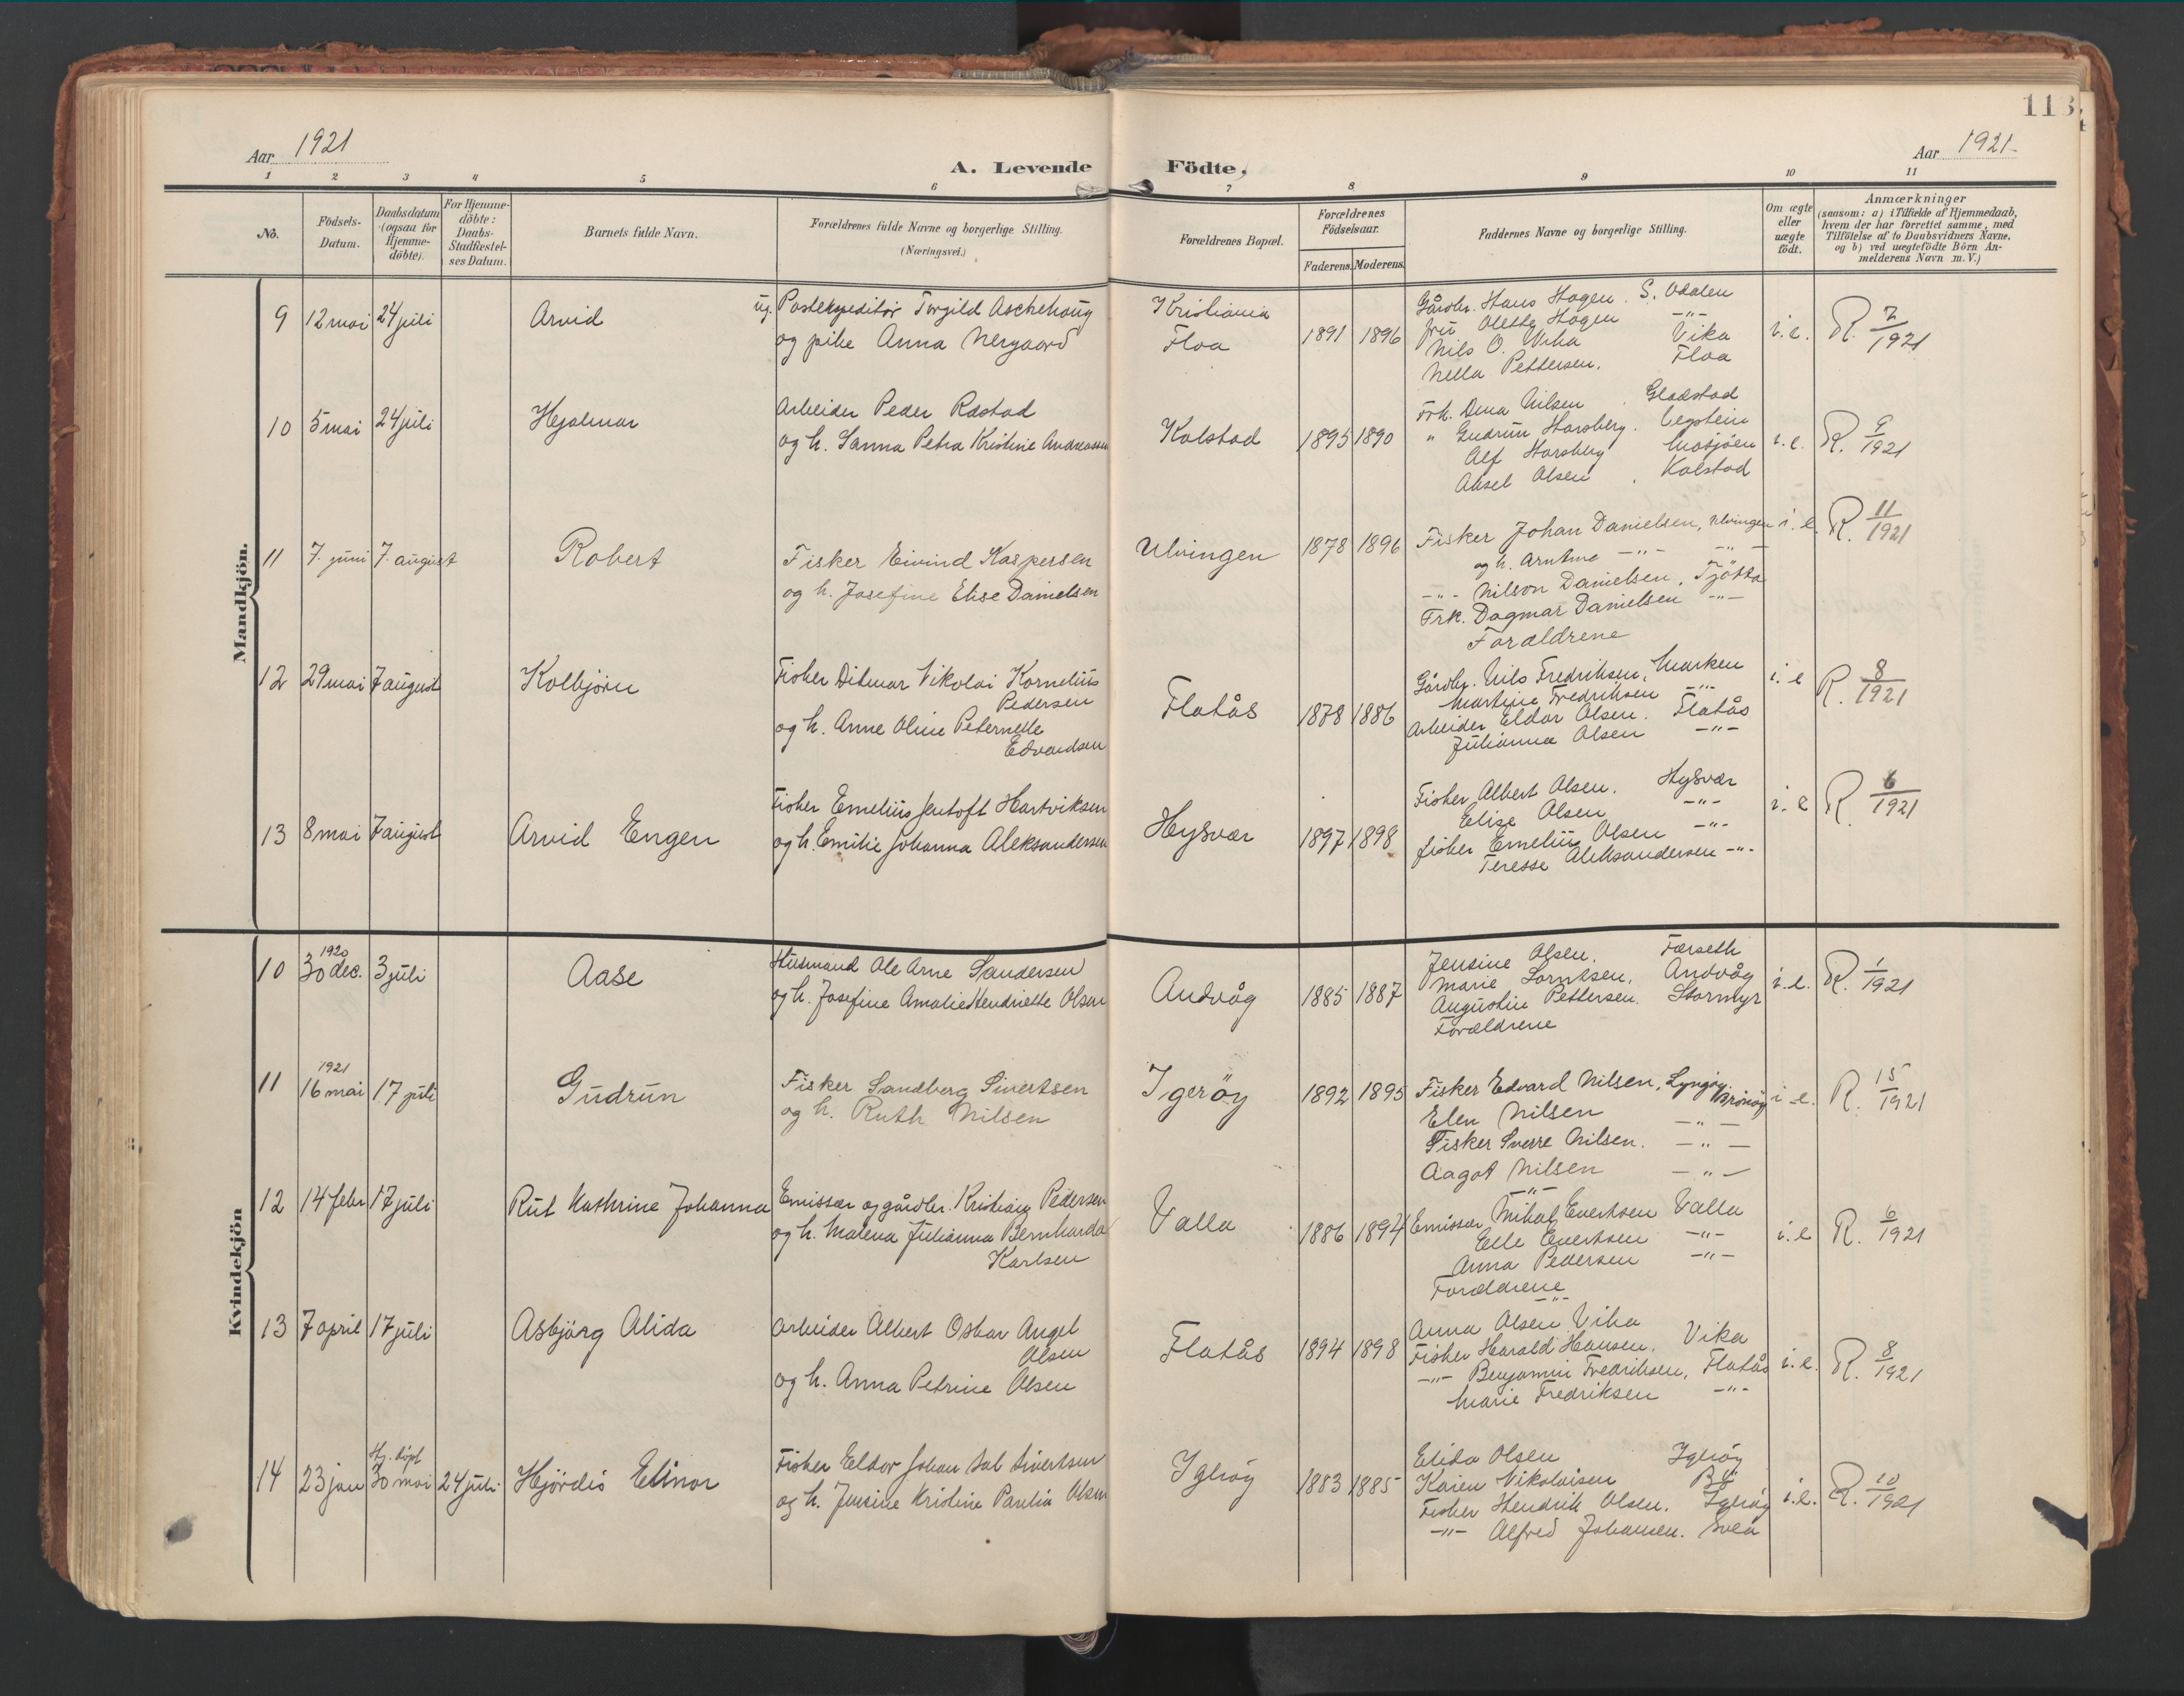 113
Aar 1921
A. Levende Födte.
Aar 1921
1 2 3 4 5 6 7 8 9 10 11
No.
Födsels-Datum.
Daabsdatum (ogsaa for Hjemme-döbte).
For Hjemme-döbte: Daabs-Stadfæstel-ses Datum.
Barnets fulde Navn.
Forældrenes fulde Navne og borgerlige Stilling. (Næringsvei.)
Forældrenes Bopæl.
Forældrenes Födselsaar.
Faderens. Moderens.
Faddernes Navne og borgerlige Stilling.
Om ægte eller uægte födt.
Anmærkninger
(saasom: a) i Tilfælde af Hjemmedaab, hvem der har forrettet samme, med Tilföielse af to Daabsvidners Navne, og b) ved uægtefödte Börn An-melderens Navn m. V.)
Mandkjön.
9 12 mai 24 juli Arvid
ug. Postekspeditör Torgild Aschehoug
og pike Anna Nergaard
Kristiania
Floa
1891 1896
Gårdbr. Hans Hagen. S. Odalen
fru Olette Hagen -"-
Nils O. Vika Vika
Nella Pettersen. Floa
i.e. R. 7/1921
10 5 mai 24 juli Hjalmar
Arbeider Peder Rastad
og h. Sanna Petra Kristine Andreassen
Kalstad
1895 1890
Frk. Dina Nilsen Gladstad
" Gudrun Horsberg.
Alf Horsberg Mosjöen
Aksel Olsen. Kalstad
i.e. R. 9/1921
11 7. juni 7. august Robert
Fisker Eivind Kaspersen
og h. Josefine Elise Danielsen
Ulvingen
1878 1896
Fisker Johan Danielsen, Ulvingen
og h. Arntine -"- -"-
-"- Nilson Danielsen, Tjötta
Frk. Dagmar Danielsen -"-
Forældrene
i.e. R. 11/1921
12 29 mai 7 august Kolbjörn
Fisker Ditmar Nikolai Kornelius
Pedersen
og h. Anne Oline Peternelle
Edvardsen
Flatås
1878 1886
Gårdbr. Nils Fredriksen, Marken
Martine Fredriksen -"-
Arbeider Eldor Olsen. Flatås
Julianna Olsen -"-
i.e R. 8/1921
13 8 mai 7 august Arvid Engen
Fisker Emelius Jentoft Hartviksen
og h. Emilie Johanna Aleksandersen
Hysvær
1897 1898
Fisker Albert Olsen. Hysvær
Elise Olsen -"-
fisker Emelius Olsen -"-
Teresse Aleksandersen -"-
i.e R. 6/1921
Kvindekjön
10 1920 30 dec. 3 juli Aase
Husmand Ole Arne Sandersen
og h. Josefine Amalie Hendriette Olsen
Andvåg
1885 1887
Jensine Olsen. Færseth
Marie Lorntsen. Andvåg
Augustin Pettersen. Stormyr
Forældrene
i.e. R. 1/1921
11 1921 16 mai 17 juli Gudrun
Fisker Sandberg Sivertsen
og h. Ruth Nilsen
Igeröy
1892 1895
Fisker Edvard Nilsen, Lyngöy Brönöy
Elen Nilsen -"-
Fisker Sverre Nilsen. -"-
Aagot Nilsen -"-
i e. R. 15/1921
12 14 febr 17 juli Rut Kathrine Johanna
Emissær og gårdbr. Kristian Pedersen
og h. Malena Julianna Bernharda
Karlsen
Valla
1886 1894
-"-
Emissær Mikal Evertsen Valla
Elle Evertsen -"-
Anna Pedersen -"-
Forældrene
i.e R. 6/1921
13 7 april 17 juli Asbjörg Alida
Arbeider Albert Oskar Angel
Olsen
og h. Anna Petrine Olsen
Flatås
1894 1898
-"-
Anna Olsen Vika
Fisker Harald Hansen. Vika
-"- Benjamin Fredriksen, Flatås
Marie Fredriksen -"-
i.e. R. 8/1921
14 23 jan Hj. döpt 30 mai 24 juli Hjördis Elinor
Fisker Eldor Johan Dal Sivertsen
og h. Jensine Kristine Paulia Olsen
Igeröy
1883 1885
Elida Olsen Igeröy
Karen Nikolaisen
Fisker Hendrik Olsen. Igeröy
-"- Alfred Johansen. Svea
i.e. R. 10/1921